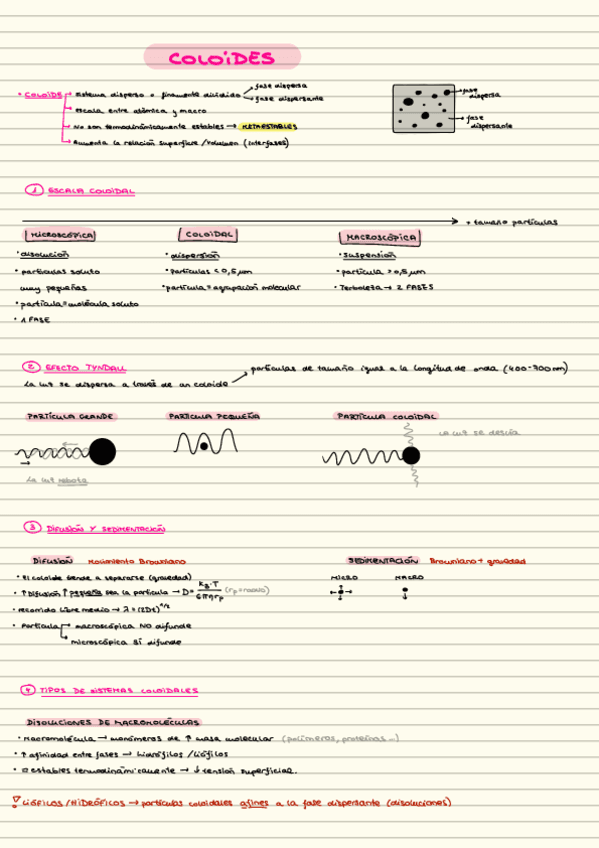 COLOiDES
• COLOiDE
Sistema disperso o finamente dividido
fase dispersa
fase dispersante
escala entre atómica y macro
No son termodinámicamente estables → METAESTABLES
Aumenta la relación superficie/volumen (interfases)
fase dispersa
fase dispersante
1 ESCALA COLOiDAL
+ tamaño partículas
MICROSCÓPICA
• disolución
• partículas soluto
muy pequeñas
• partícula = molécula soluto
• 1 FASE
COLOiDAL
• dispersión
• partículas < 0,5 μm
• partícula = agrupación molecular
MACROSCÓPICA
• suspensión
• partícula > 0,5 μm
• Terboleza → 2 FASES
2 EFECTO TYNDALL
partículas de tamaño igual a la longitud de onda (400-700nm)
La luz se dispersa a través de un coloide
PARTÍCULA GRANDE
La luz rebota
PARTÍCULA PEQUEÑA
PARTÍCULA COLOiDAL
La luz se desvía
3 DIFUSIÓN Y SEDIMENTACIÓN
DIFUSIÓN Movimiento Browniano
• El coloide tiende a separarse (gravedad)
• ↑ Difusión ↑ pequeña sea la partícula → D = kB·T / 6πηrp (rp=radio)
• recorrido libre medio → λ = (2Dt)^1/2
• Partícula
macroscópica NO difunde
microscópica SÍ difunde
SEDIMENTACIÓN Browniano + gravedad
MICRO MACRO
4 TIPOS DE SISTEMAS COLOIDALES
DISOLUCIONES DE MACROMOLÉCULAS
• Macromolécula → monómeros de ↑ masa molecular (polímeros, proteínas...)
• ↑ afinidad entre fases → hidrófilos / liófilos
estables termodinámicamente → ↓ tensión superficial.
LIÓFILOS/HIDRÓFICOS → partículas coloidales afines a la fase dispersante (disoluciones)